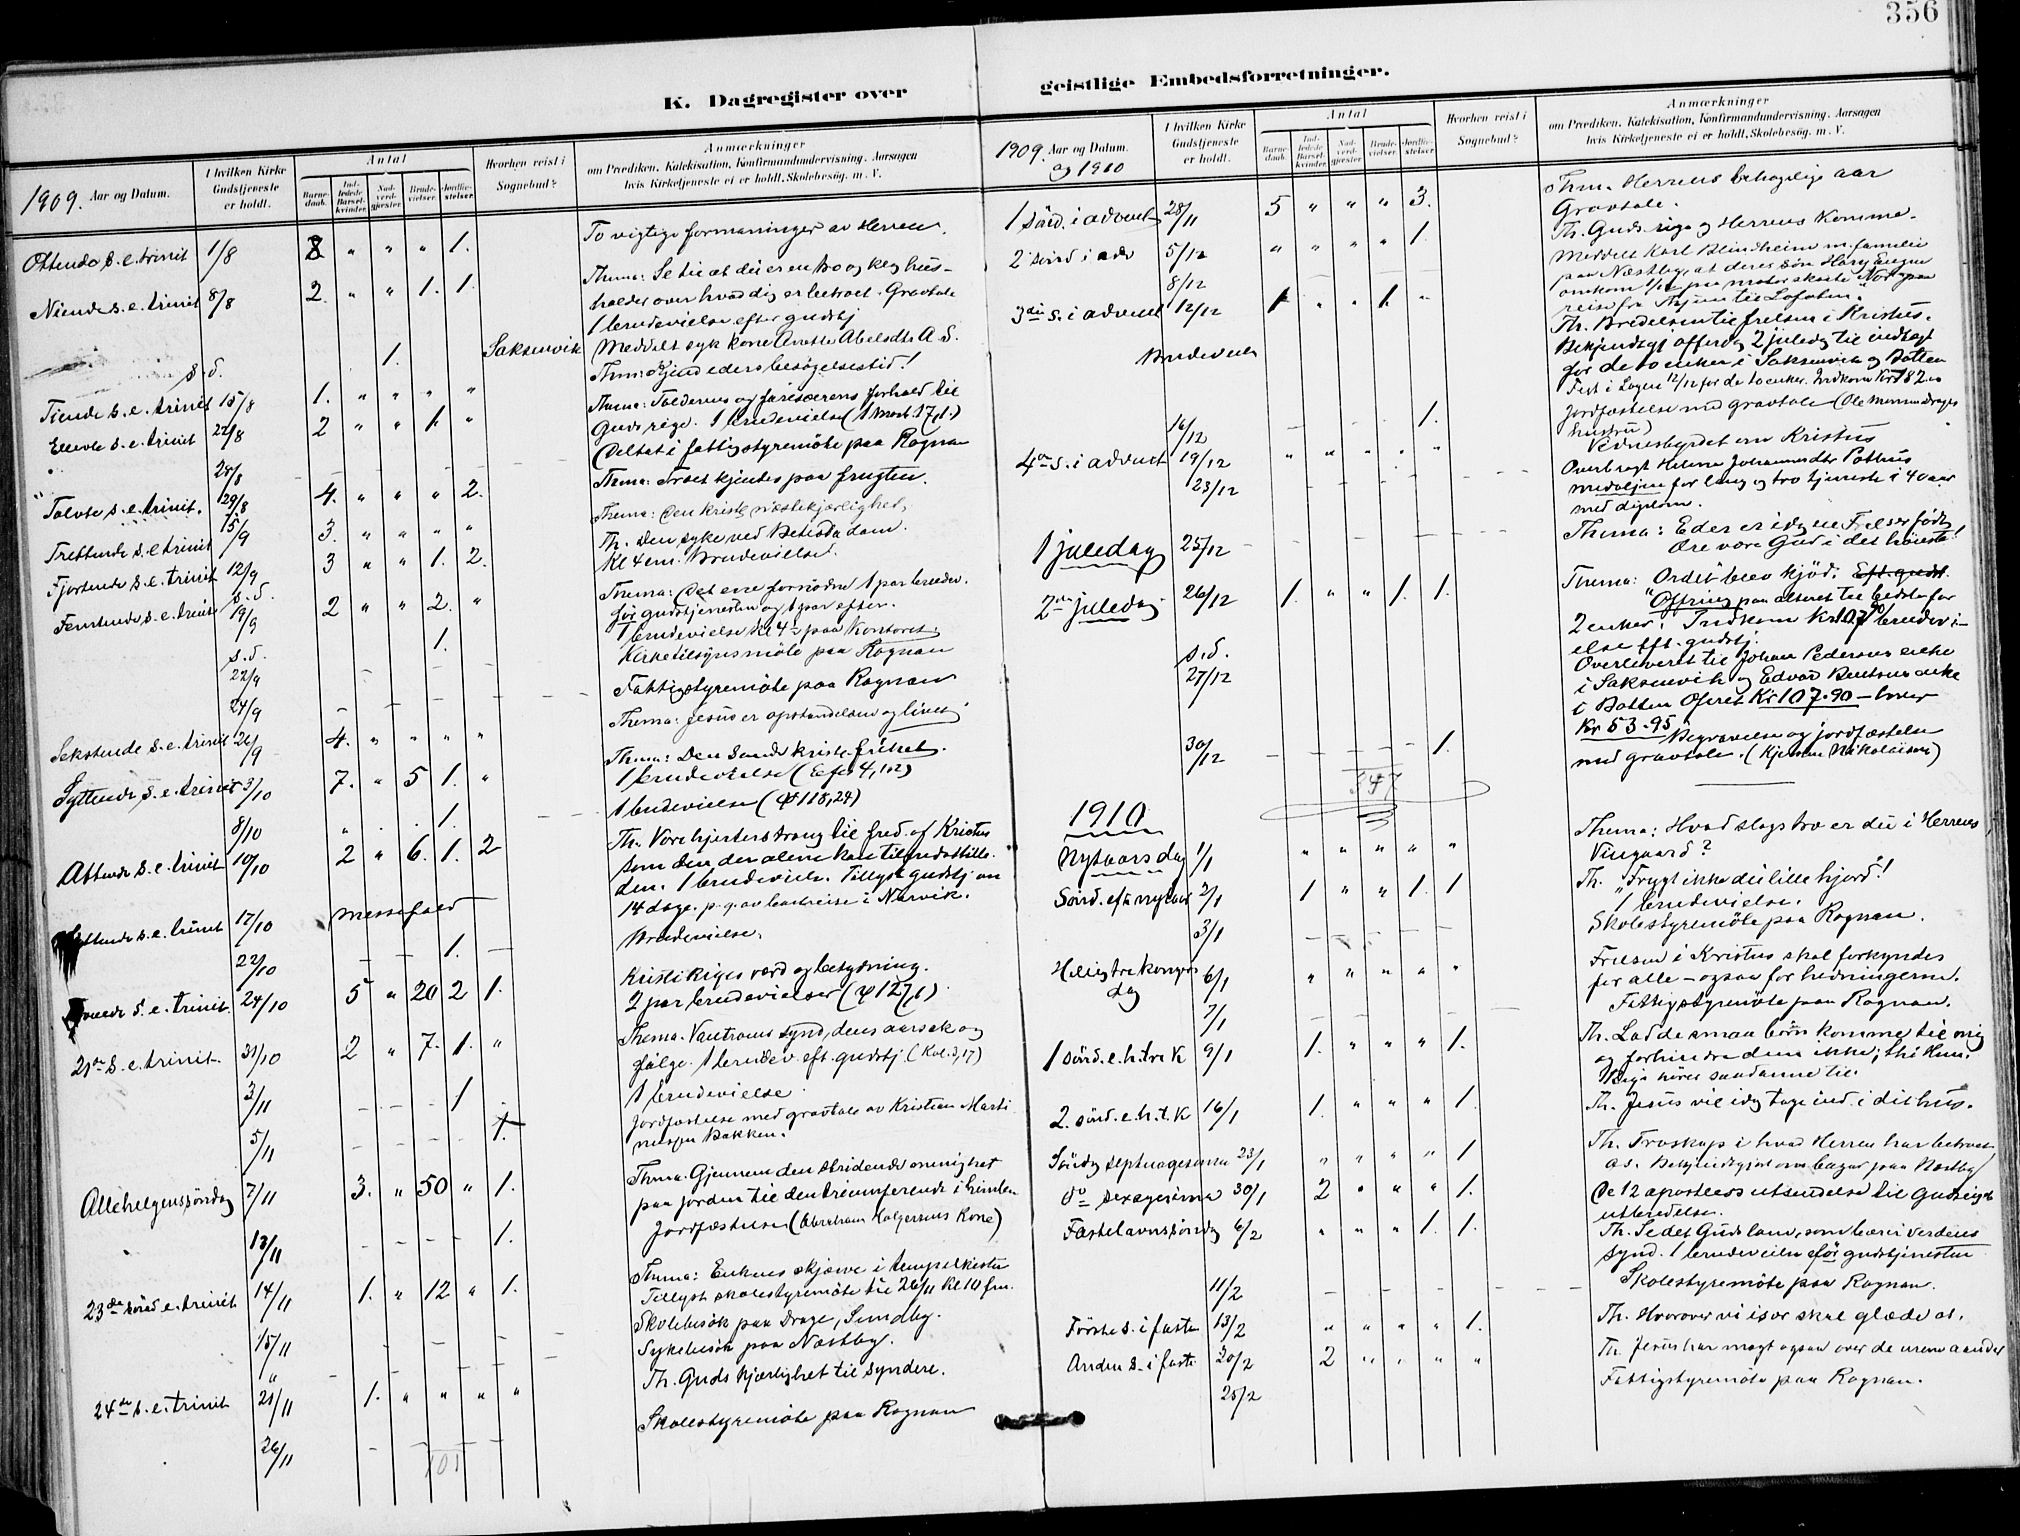 356
K. Dagregister over
geistlige Embedsforretninger.
1909. Aar og Datum.
I hvilken Kirke Gudstjeneste er holdt.
Antal
Barnedaab. Indledede Barselkvinder. Nadverdgjester. Brudevielser. Jordfæstelser.
Hvorhen reist i Sognebud?
Anmærkninger
om Prædiken, Katekisation, Konfirmandundervisning, Aarsagen
hvis Kirketjeneste ei er holdt, Skolebesøg, m. V.
Ottende s. e. trinit 1/8 8 " " " 1. To vigtige formaninger av Herren.
Niende s. e. trinit 8/8 2. " " 1. 1. Thema: Se til at du er en tro og klog hus-
holder over hvad dig er betroet. Gravtale
1 brudevielse efter gudstj
s.d. 1. Saksenvik Meddelt syk kone Anette Abelsdtr A. S.
Tiende s. e. trinit 15/8 1. " " " " Thm: Kjend eders besøgelsestid!
Ellevte s. e. trinit 22/8 2 " " 1. " Thema: Tolderens og farisæerens forhold til
Guds rige. 1 brudevielse (1 Mosb. 17,1)
28/8 Deltat i fattigstyremöte paa Rognan
Tolvte s. e. trinit. 29/8 4. " " " 2. Thema: Træet kjendes paa frugten.
Trettende s. e. trinit 5/9 3. " " " " Thema: Den kristne næstekjærlighet.
Fjortende s. e. trinit 12/9 3 " " 1. 2. Th. Den syke ved Betesda dam.
s.d. Kl 4 em. Brudevielse.
Femtende s. e. trinit 19/9 2 " " 2. " Thema: Det ene fornødne 1 par brudev.
før gudstjenesten og 1 par efter.
s.d. 1. 1 brudevielse Kl 4½ paa Kontoret.
22/9 Kirketilsynsmöte paa Rognan
24/9 Fattigstyremöte paa Rognan
Sekstende s. e. trinit 26/9 4. " " " " Thema: Jesus er opstandelsen og livet.
Syttende s. e. trinit 3/10 7. " 5 1. " Thema: Den sande kristne frihet.
1 brudevielse (Efes 4,1.2)
8/10 " . . 1. 1 brudevielse (ψ 118,24)
Attende s. e. trinit 10/10 2 " 6. 1. 2 Th. Vore hjerters trang til fred og Kristus
som den der alene kan tilfredsstille
den. 1 brudeviels. Tillyst gudstj om
14 dage. p. g. av bortreise i Narvik.
17/10 Messefald
22/10 1. Brudevielse.
24/10 5 " 20 2 1. Kristi Riges værd og betydning.
2 par brudevielser (ψ 127,1)
21de s. e. trinit. 31/10 2 " 7. 1. " Thema. Vantroens synd, dens aarsak og
følge. 1 brudev. eft. gudstj. (Kol. 3,17)
3/11 1 1 brudevielse
5/11 1. Jordfæstelse med gravtale av Kristian Marti
nusen Bakken.
Allehelgenssöndag 7/11 3. " 50 " 1. Thema. Gjennem den stridende menighet
paa jorden til den triumferende i himlen
13/11 1. Jordfæstelse (Abraham Holgersens Kone)
23de sönd e. trinit 14/11 1. " 12 " 1. Thema: Enkens skjærv i tempelkisten
Tillyst skolestyremöte til 26/11 Kl 10 fm.
15/11 Skolebesök paa Drage, Sundby.
" Sykebesök paa Næstby.
24de s. e. trinit 21/11 1. " " " " Th. Guds kjærlighet til syndere.
26/11 Skolestyremöte paa Rognan
101
1909. Aar og Datum.
og 1910
I hvilken Kirke Gudstjeneste er holdt.
Antal
Barnedaab. Indledede Barselkvinder. Nadverdgjester. Brudevielser. Jordfæstelser.
Hvorhen reist i Sognebud?
Anmærkninger
om Prædiken, Katekisation, Konfirmandundervisning, Aarsagen
hvis Kirketjeneste ei er holdt, Skolebesög, m. V.
1 sönd. i advent 28/11 5 " " " 3. Thm. Herrens behagelige aar
Gravtale.
2 sönd i adv 5/12 " " " " 1. Th. Guds rige og Herrens komme.
8/12 Meddelt Karl Blindheim m. familie
paa Næstby, at deres sön Harry
omkom 1/12 paa motorskøite paa
reise fra til Lofoten.
3die s. i advent 12/12 1 " " 1. " Th. Beredelsen til frelsen i Kristus.
Brudeviels Bekjendtgj offer dag 2 juledag til indtægt
for de to enker i Saksenvik og Botten
Fest i Logen 12/12 for de to enker. Indkom Kr 182.
16/12 1. Jordfæstelse med gravtale (Ole Drages
hustru)
4de s. i advent 19/12 " " " " " Vidnesbyrdet om Kristus
23/12 Overbragt Helene Johannesdtr Pothus
medaljen for lang og tro tjeneste i 40 aar
med diplom.
1 juledag 25/12 Thema: Eder er idag en Frelser født
Ære være Gud i det høieste!
2den juledag 26/12 1. " " 1. 1. Thema: "Ordet blev kjöd". Eft. gudst.
Ofring paa alteret til bedste for
2 enker. Indkom Kr 107 90 brudevi-
else eft. gudstj.
s.d.
27/12 Overleveret til Johan Pedersens enke
i Saksenvik og Edvard Bentsens enke
i Botten Ofret Kr 107.90 – hver
Kr 53.95
30/12 1. Begravelse og jordfæstelse
med gravtale. (Kjerstine Nikolaisen)
347
1910
Nytaarsdag 1/1 " " " " " Thema: Hvad slags tro er du i Herrens
Vingaard?
Sönd. eft nytaar 2/1 1 " " 1. 1 Th. "Frygt ikke du lille hjord"!
1 brudevielse.
3/1 Skolestyremöte paa Rognan.
Hellig tre kongers dag 6/1 " " " " " Frelsen i Kristus skal forkyndes
for alle – ogsaa for hedningerne.
7/1 Fattigstyremöte paa Rognan.
1 sönd. e. h. tre K 9/1 1. " " " 1. Th. Lad de smaa börn komme til mig
og forhindre dem ikke; thi Him.
Rige hörer saadanne til.
2. sönd. e. h. t. K 16/1 1. " " " 1. Th. Jesus vil idag tage ind i dit hus.
Söndag septuagesima 23/1 " " " " 1 Th. Troskap i hvad Herren har betroet
os. Bekjendtgjort om bazar paa Næstby
do sexagesima 30/1 2 " " " 1. De 12 apostlers utsendelse til Gudsrigets
utbredelse.
Fastelavnssöndag 6/2 " " " 1. 1. Th. Se det Guds lam, som bærer verdens
synd. 1 brudevielse för gudstjenesten
11/2 Skolestyremöte paa Rognan.
Förste s. i faste 13/2 " " " " 1. Th. Hvorover vi især skal glæde os.
Anden s. i faste 20/2 2 " " " " Th. Jesus har magt ogsaa over de urene aander
25/2 Fattigstyremöte paa Rognan.